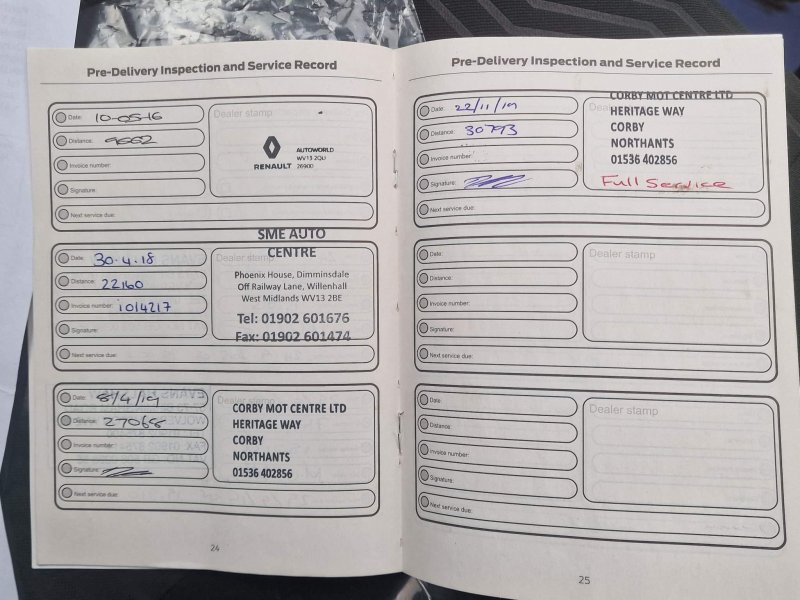 Pre-Delivery Inspection and Service Record
Date: 10-05-16
Distance: 9662
Invoice number:
Signature:
Next service due:
Dealer stamp
RENAULT
AUTOWORLD
WV13 2QU
26900
Date: 30.4.18
Distance: 22160
Invoice number: 1014217
Signature:
Next service due:
Dealer stamp
SME AUTO
CENTRE
Phoenix House, Dimminsdale
Off Railway Lane, Willenhall
West Midlands WV13 2BE
Tel: 01902 601676
Fax: 01902 601474
Date: 8/4/19
Distance: 27068
Invoice number:
Signature:
Next service due:
Dealer stamp
CORBY MOT CENTRE LTD
HERITAGE WAY
CORBY
NORTHANTS
01536 402856
24
Pre-Delivery Inspection and Service Record
Date: 22/11/19
Distance: 30793
Invoice number:
Signature:
Next service due:
CORBY MOT CENTRE LTD
HERITAGE WAY
CORBY
NORTHANTS
01536 402856
Full Service
Date:
Distance:
Invoice number:
Signature:
Next service due:
Dealer stamp
Date:
Distance:
Invoice number:
Signature:
Next service due:
Dealer stamp
25